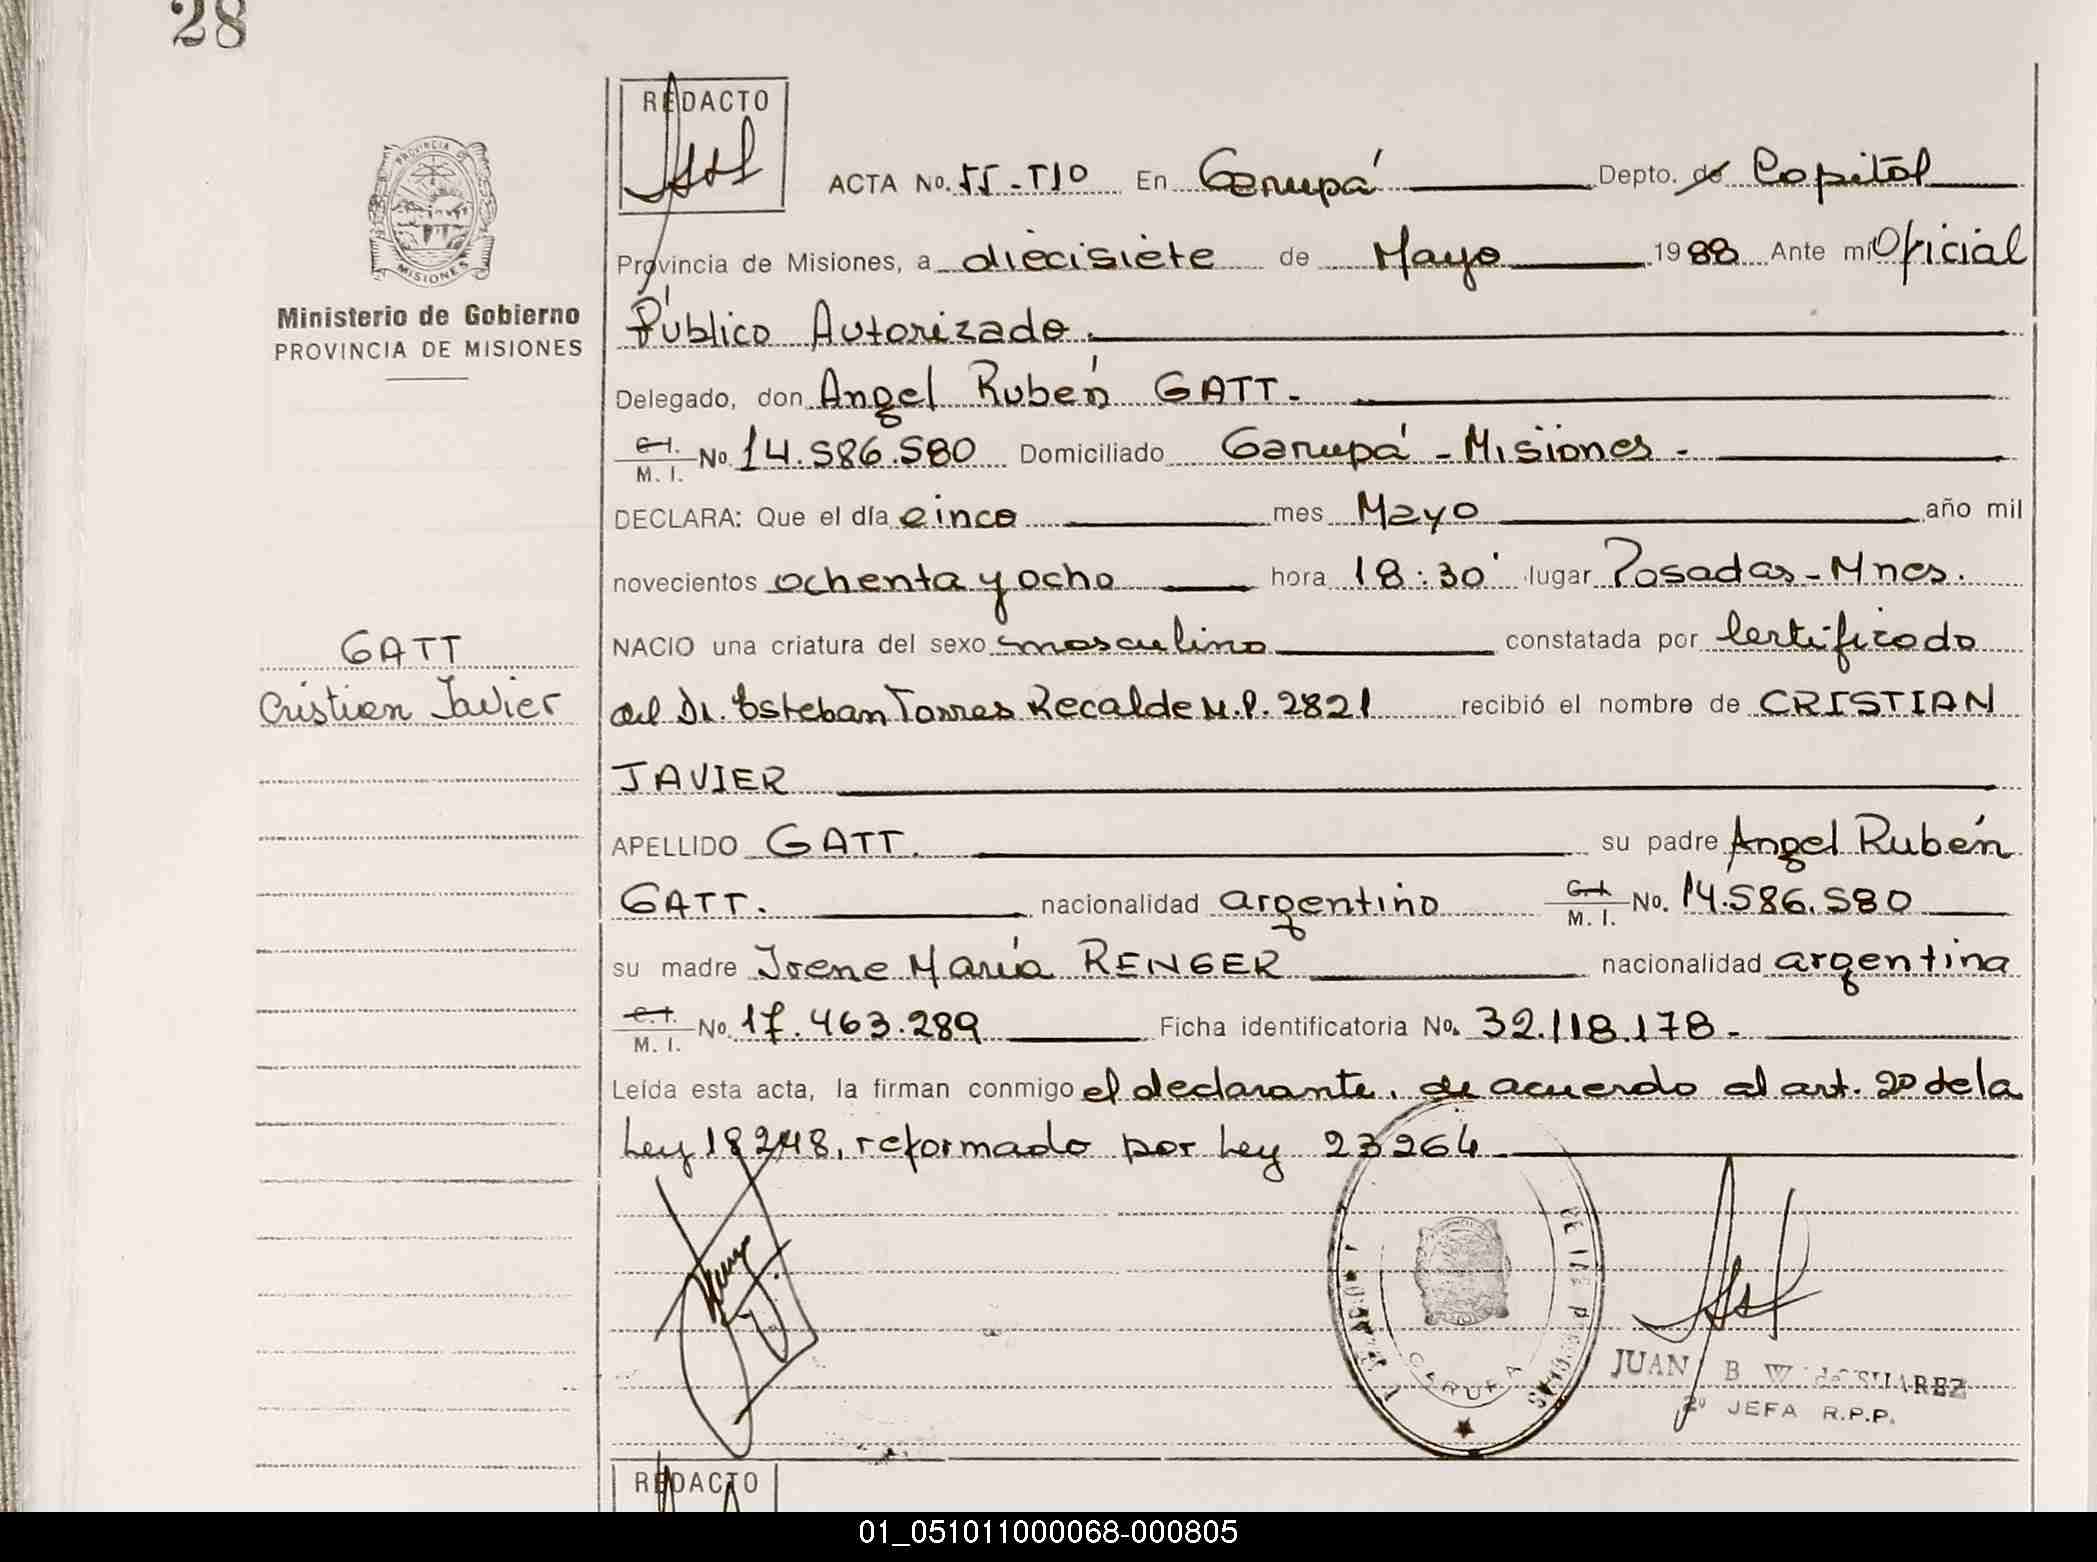 28
REDACTO
ACTA No. 55-TIO En Garupá Depto. de Capital
PROVINCIA DE
MISIONES
Provincia de Misiones, a diecisiete de Mayo 1988 Ante mí Oficial
Ministerio de Gobierno
PROVINCIA DE MISIONES
Público Autorizado.
Delegado, don Angel Rubén GATT.
C.I.
M. I. No. 14.586.580 Domiciliado Garupá - Misiones -
DECLARA: Que el día cinco mes Mayo año mil
novecientos ochenta y ocho hora 18:30' lugar Posadas - Mnes.
NACIO una criatura del sexo masculino constatada por Certificado
GATT
Cristian Javier
del Dr. Esteban Torres Recalde M.P. 2821 recibió el nombre de CRISTIAN
JAVIER
APELLIDO GATT. su padre Angel Rubén
GATT. nacionalidad argentino C.I. M. I. No. 14.586.580
su madre Irene María RENGER nacionalidad argentina
C.I.
M. I. No. 17.463.289 Ficha identificatoria No. 32.118.178-
Leída esta acta, la firman conmigo el declarante, de acuerdo al art. 2º de la
Ley 18248, reformado por Ley 23264
GARUPA
JUAN B W de SUAREZ
2º JEFA R.P.P.
REDACTO
01_051011000068-000805